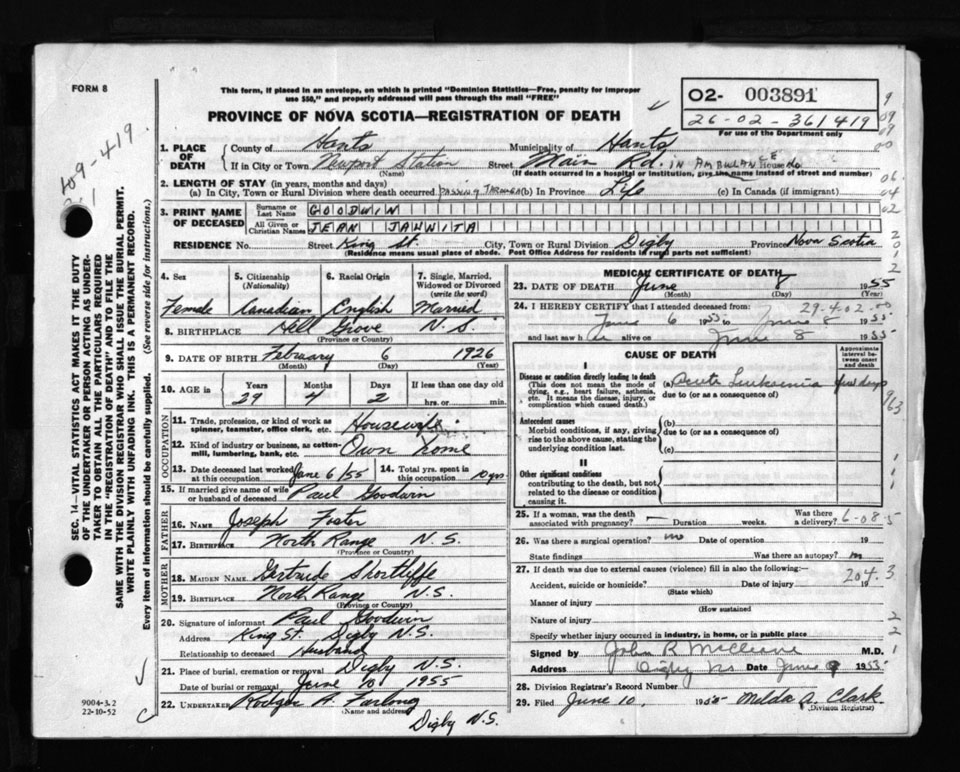 FORM 8
This form, if placed in an envelope, on which is printed "Dominion Statistics—Free, penalty for improper
use $50," and properly addressed will pass through the mail "FREE"
PROVINCE OF NOVA SCOTIA—REGISTRATION OF DEATH
O2- 003891
26-02-361419
For use of the Department only
109-419
1. PLACE OF DEATH
County of Hants
Municipality of Hants
If in City or Town Newport Station
(Name)
Street Main Rd. IN AMBULANCE
(If death occurred in a hospital or institution, give the name instead of street and number)
2. LENGTH OF STAY (in years, months and days)
(a) In City, Town or Rural Division where death occurred PASSING THROUGH (b) In Province Life (c) In Canada (if immigrant)
3. PRINT NAME OF DECEASED
Surname or Last Name GOODWIN
All Given or Christian Names JEAN JANNITA
RESIDENCE No. Street King St. City, Town or Rural Division Digby Province Nova Scotia
(Residence means usual place of abode. Post Office Address for residents in rural parts not sufficient)
4. Sex
Female
5. Citizenship
(Nationality)
Canadian
6. Racial Origin
English
7. Single, Married, Widowed or Divorced
(write the word)
Married
8. BIRTHPLACE Hill Grove N.S.
(Province or Country)
9. DATE OF BIRTH February 6 1926
(Month) (Day) (Year)
10. AGE in
Years Months Days If less than one day old
29 4 2 hrs. or min.
OCCUPATION
11. Trade, profession, or kind of work as spinner, teamster, office clerk, etc. Housewife
12. Kind of industry or business, as cotton-mill, lumbering, bank, etc. Own Home
13. Date deceased last worked at this occupation June 6/55
14. Total yrs. spent in this occupation 10 yrs
15. If married give name of wife or husband of deceased Paul Goodwin
FATHER
16. NAME Joseph Foster
17. BIRTHPLACE North Range N.S.
(Province or Country)
MOTHER
18. MAIDEN NAME Gertrude Shortliffe
19. BIRTHPLACE North Range N.S.
(Province or Country)
20. Signature of informant Paul Goodwin
Address King St. Digby N.S.
Relationship to deceased Husband
21. Place of burial, cremation or removal Digby N.S.
Date of burial or removal June 10 1955
22. UNDERTAKER
(Name and address)
Digby N.S.
MEDICAL CERTIFICATE OF DEATH
23. DATE OF DEATH June 8 1955
(Month) (Day) (Year)
24. I HEREBY CERTIFY that I attended deceased from 29-4-02-00
June 6 1955 to June 8 1955
and last saw h er alive on June 8 1955
CAUSE OF DEATH
Approximate interval between onset and death
I
Disease or condition directly leading to death
(This does not mean the mode of dying, e.g., heart failure, asthenia, etc. It means the disease, injury, or complication which caused death.)
(a) Acute Leukemia few days
due to (or as a consequence of)
Antecedent causes
Morbid conditions, if any, giving rise to the above cause, stating the underlying condition last.
(b)
due to (or as a consequence of)
(c)
II
Other significant conditions
contributing to the death, but not related to the disease or condition causing it.
25. If a woman, was the death associated with pregnancy? — Duration weeks. Was there a delivery? 6-08.5
26. Was there a surgical operation? no Date of operation 19
State findings Was there an autopsy?
27. If death was due to external causes (violence) fill in also the following:— 204.3
Accident, suicide or homicide? Date of injury 19
(State which)
Manner of injury
(How sustained
Nature of injury
Specify whether injury occurred in industry, in home, or in public place
Signed by John R McCleave M.D.
Address Digby NS Date June 9 1955
28. Division Registrar's Record Number
29. Filed June 10, 1955 Melda A. Clark
(Division Registrar)
SEC. 14—VITAL STATISTICS ACT MAKES IT THE DUTY
OF THE UNDERTAKER OR PERSON ACTING AS UNDER-
TAKER TO OBTAIN ALL THE PARTICULARS REQUIRED
IN THE "REGISTRATION OF DEATH" AND TO FILE THE
SAME WITH THE DIVISION REGISTRAR WHO SHALL ISSUE THE BURIAL PERMIT.
WRITE PLAINLY WITH UNFADING INK. THIS IS A PERMANENT RECORD.
Every item of information should be carefully supplied. (See reverse side for instructions.)
9004-3.2
22-10-52